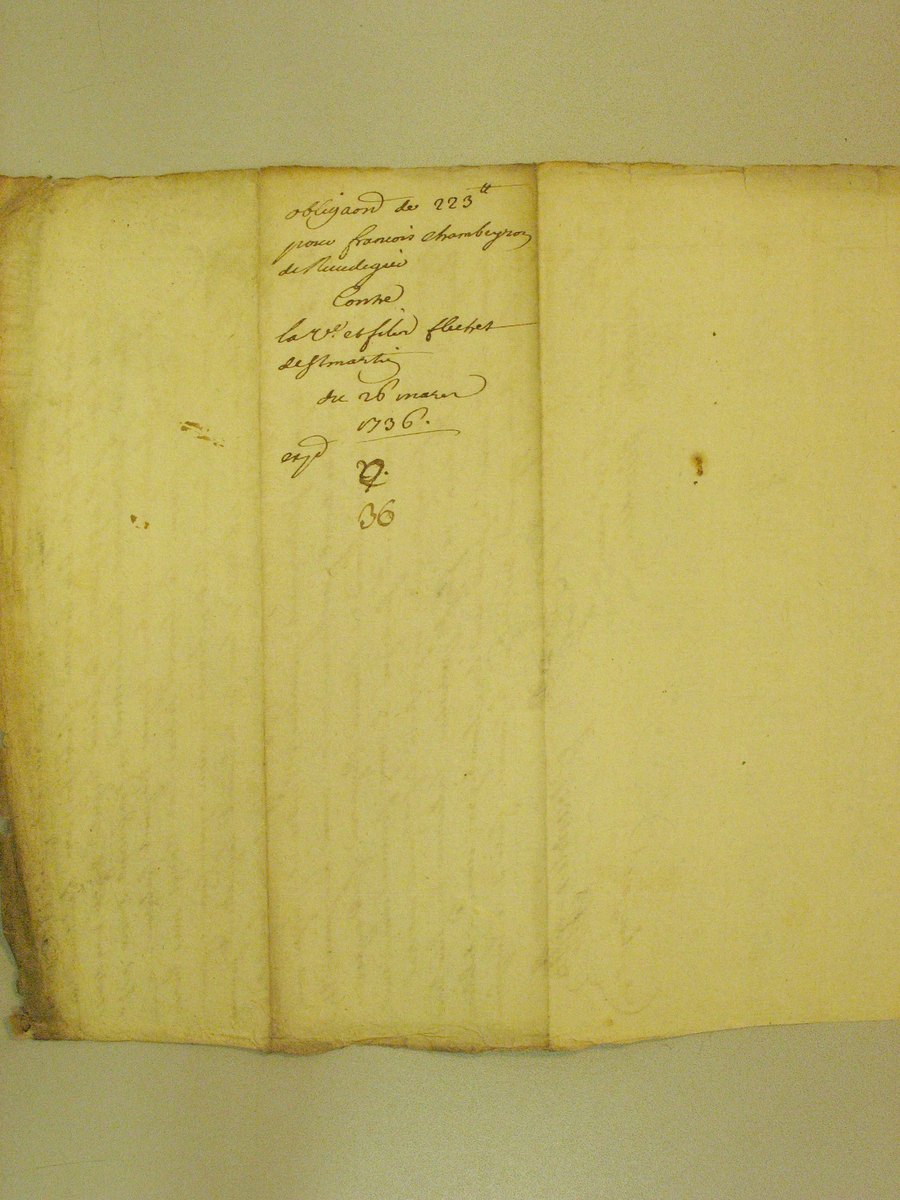 obligaon de 223 tt
pour francois Chambeyron
de
Contre
la Ve et fils flechet
de St martin
du 26 mars
1736.
expd
2.
36